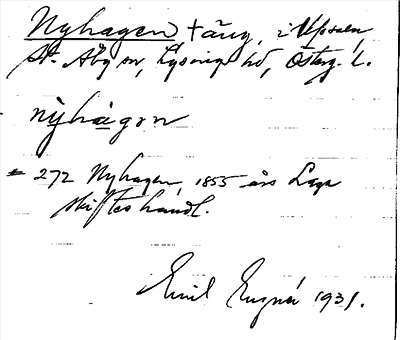 Nyhagen, t äng, i Uppsalen,
St. Åby sn, Lysings hd, Österg. l.
nỳhágən
272 Nyhagen, 1855 års Laga
skifteshandl.
Emil 1931.